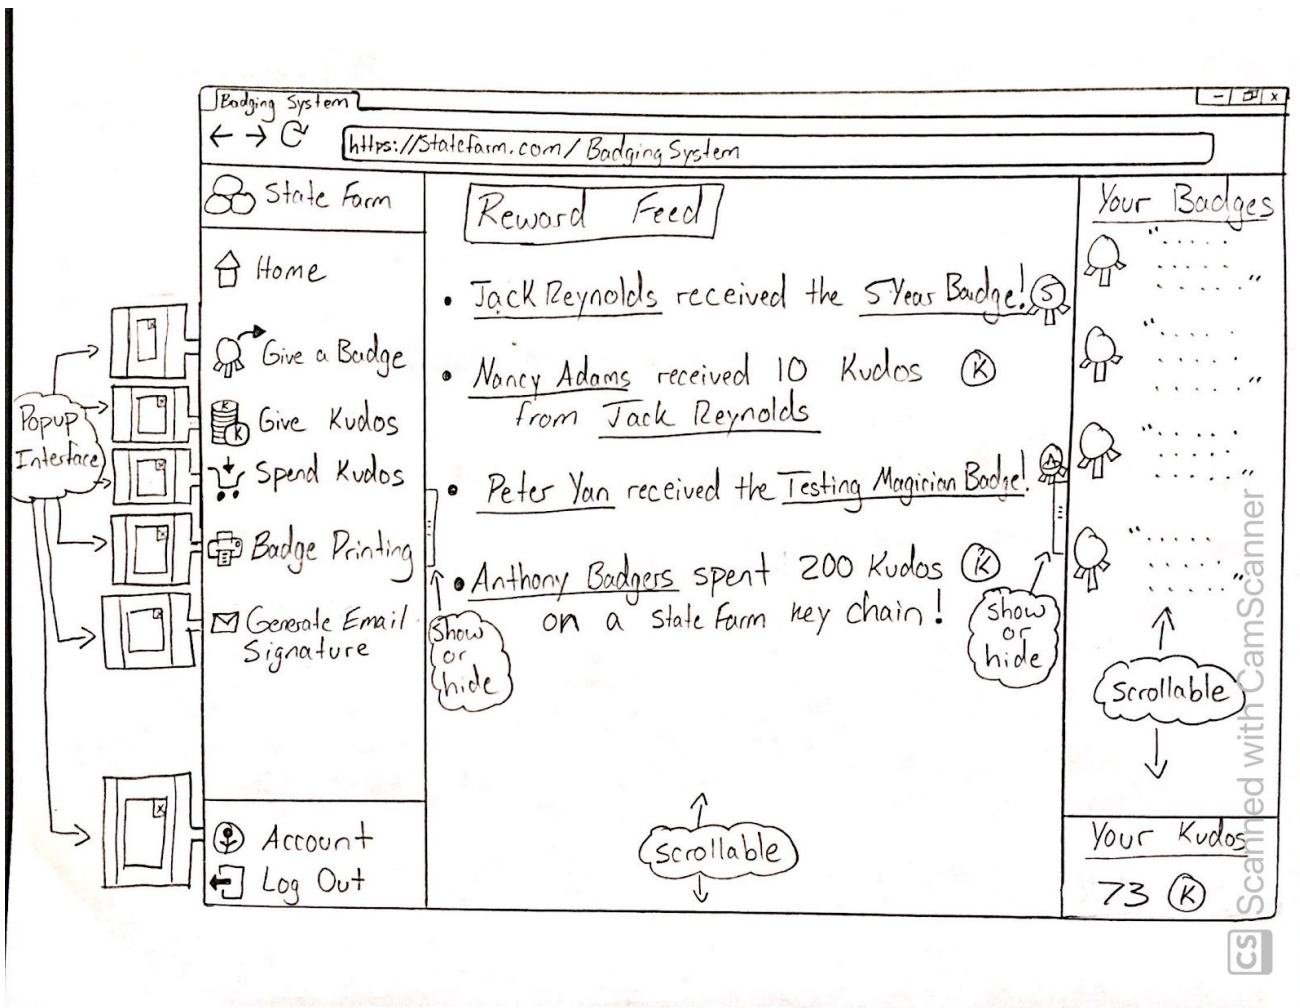 Badging System
https://StateFarm.com/BadgingSystem
State Farm
Home
Give a Badge
Give Kudos
Spend Kudos
Badge Printing
Generate Email
Signature
Account
Log Out
Popup
Interface
Reward Feed
• Jack Reynolds received the 5 Year Badge! 5
• Nancy Adams received 10 Kudos K
from Jack Reynolds
• Peter Yan received the Testing Magician Badge!
• Anthony Badgers spent 200 Kudos K
on a State Farm key chain!
show
or
hide
show
or
hide
scrollable
Your Badges
scrollable
Your Kudos
73 K
CS Scanned with CamScanner